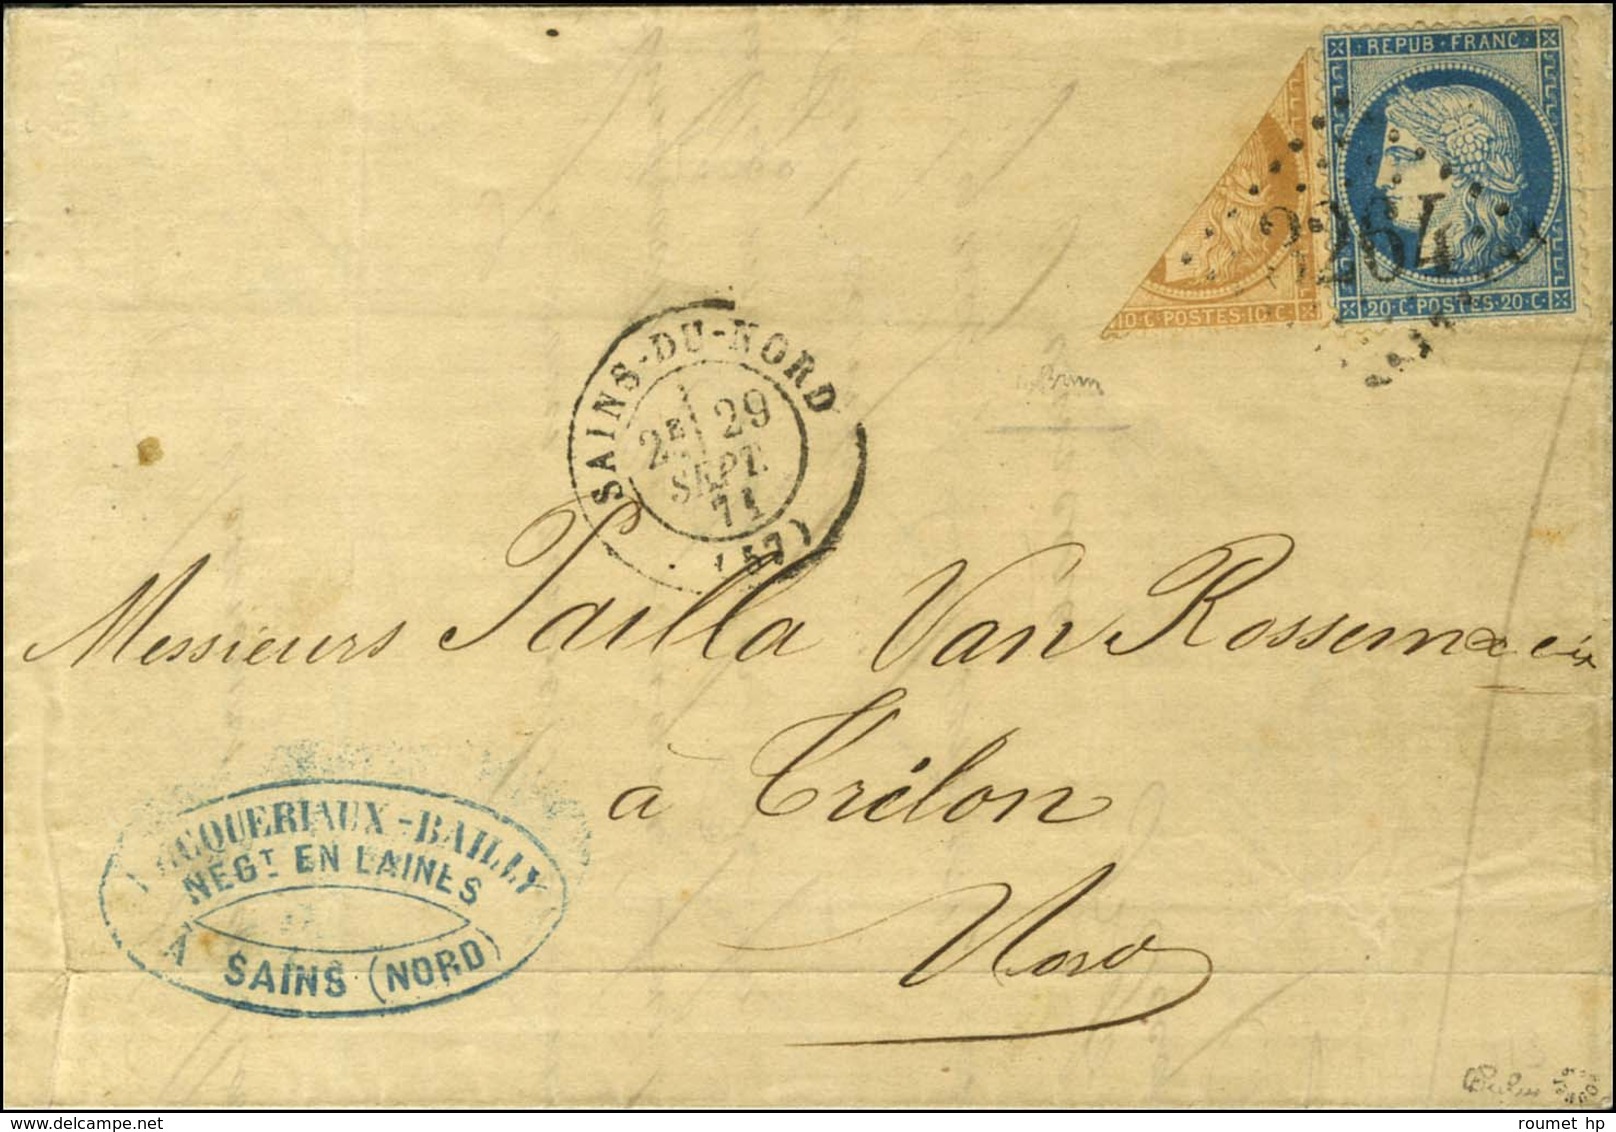 REPUB·FRANC
10·C·POSTES·10·C
20·C·POSTES·20·C
2264
SAINS-DU-NORD
2E 29
SEPT.
71
(57)
Brun
Messieurs Pailla Van Rossem & Cie
à Trélon
Nord
CQUERIAUX-BAILLY
NEGT EN LAINES
À SAINS (NORD)
delcampe.net
roumet_hp